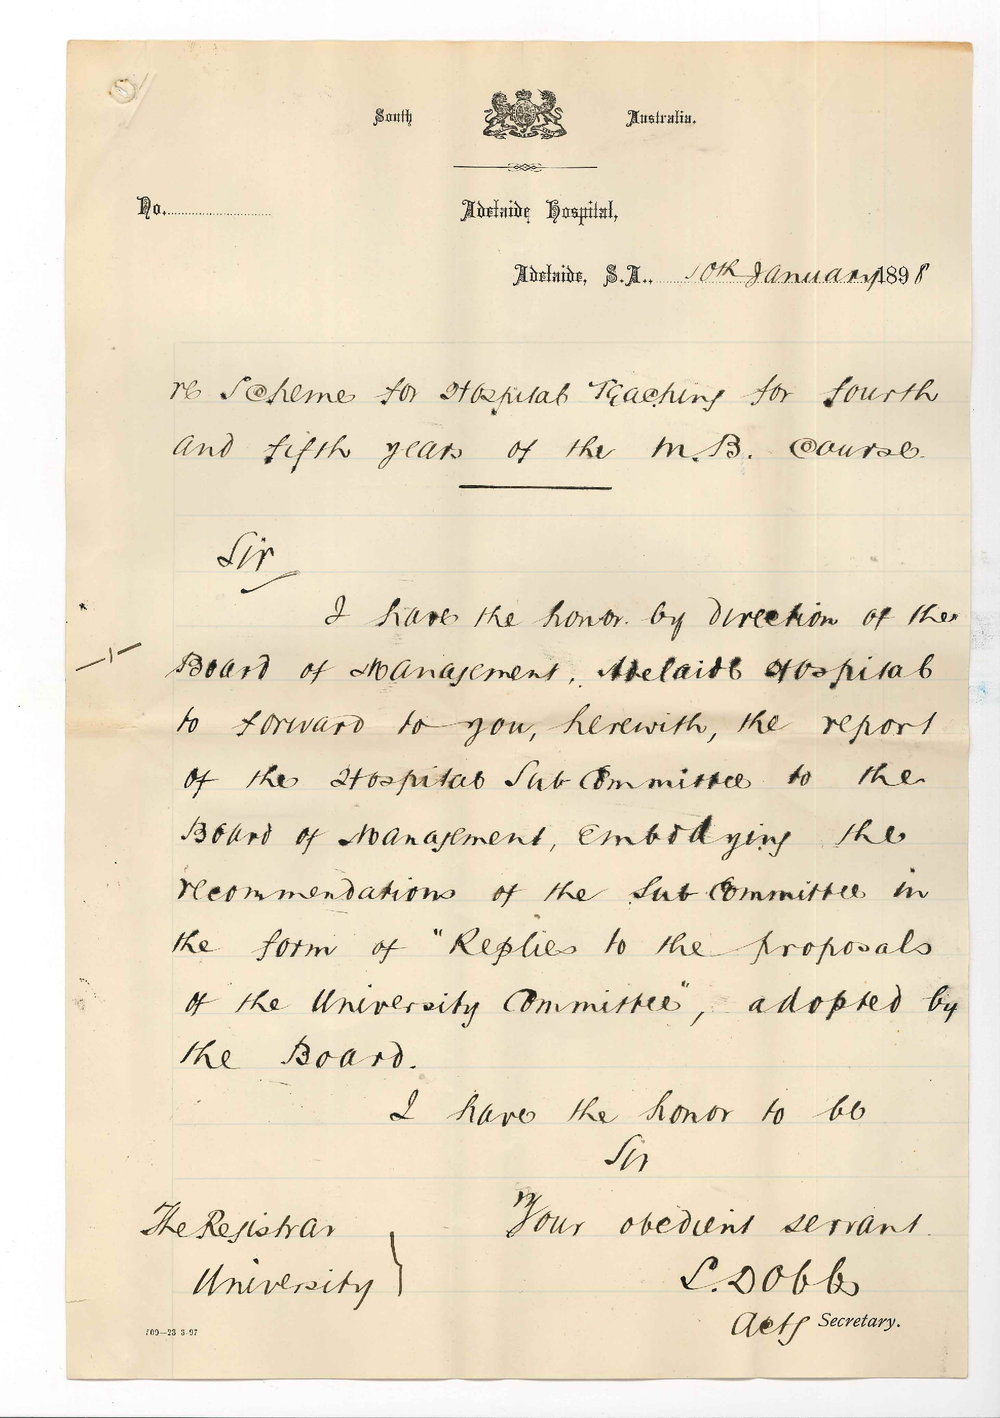 South Australia.
No.
Adelaide Hospital,
Adelaide, S.A., 10th January 1898
re Scheme for Hospital Teaching for fourth
and fifth years of the M.B. Course.
Sir
I have the honor by direction of the
Board of Management, Adelaide Hospital
to forward to you, herewith, the report
of the Hospital Sub Committee to the
Board of Management, embodying the
recommendations of the Sub Committee in
the form of "Replies to the proposals
of the University Committee", adopted by
the Board.
I have the honor to be
Sir
Your obedient servant.
L. Dobbs
Actg Secretary.
The Registrar
University